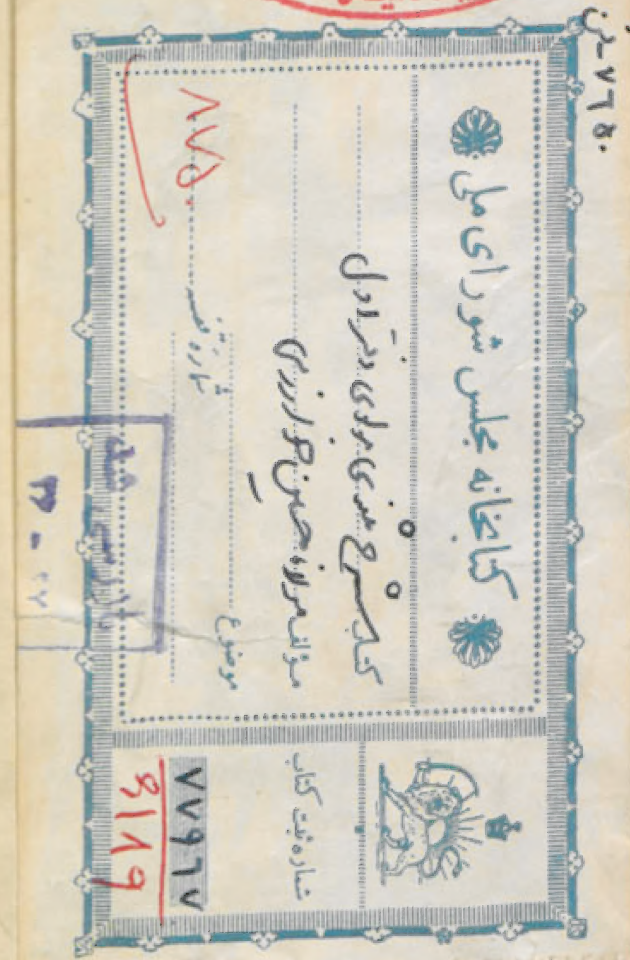 کتابخانه مجلس شورای ملی
کتاب شرح مثنوی مولوی دفتر اول
مؤلف مولانا حسین خوارزمی
موضوع
شماره قفسه ۸۷۵۰
شماره ثبت کتاب
۷۷۹۶۷
بازرسی شد